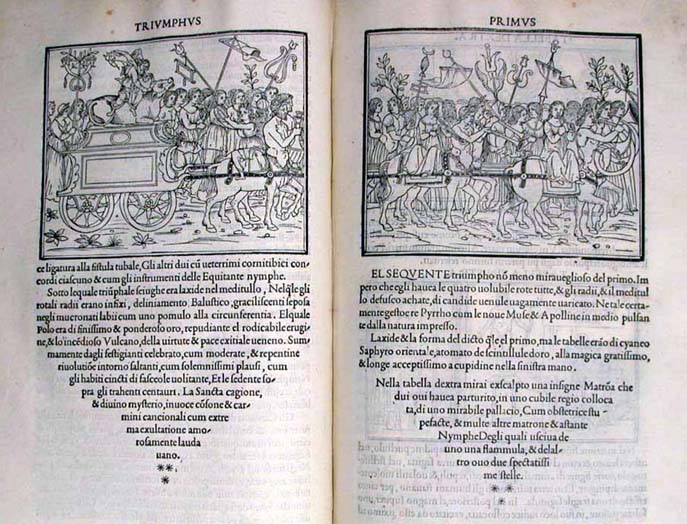 TRIVMPHVS
ce ligatura alla fistula tubale, Gli altri dui cū ueterrimi cornitibici con
cordi ciascuno & cum gli instrumenti delle Equitante nymphe.
Sotto lequale triūphale seiughe era laxide nel meditullo, Nelq̄le gli
rotali radii erano infixi, deliniamento Balustico, graciliscenti seposa
negli mucronati labii cum uno pomulo alla circunferentia. Elquale
Polo era di finissimo & ponderoso oro, repudiante el rodicabile erugi
ne, & lo'incēdioso Vulcano, della uirtute & pace exitiale ueneno. Sum
mamente dagli festigianti celebrato, cum moderate, & repentine
riuolutiōe intorno saltanti, cum solemnissimi plausi, cum
gli habiti cincti di fasceole uolitante, Et le sedente so
pra gli trahenti centauri. La Sancta cagione,
& diuino mysterio, in uoce cōsone & car
mini cancionali cum extre
ma exultatione amo
rosamente lauda
uano.
PRIMVS
EL SEQVENTE triumpho nō meno miraueglioso del primo. Im
pero che egli hauea le quatro uolubile rote tutte, & gli radii, & il meditul
lo defusco achate, di candide uenule uagamente uaricato. Ne tale certa-
mente gestoe re Pyrrho cum le noue Muse & Apolline in medio pulsan
te dalla natura impresso.
Laxide & la forma del dicto q̄le el primo, ma le tabelle erāo di cyaneo
Saphyro orientale, atomato de scintillule doro, alla magica gratissimo,
& longe acceptissimo a cupidine nella sinistra mano.
Nella tabella dextra mirai exscalpto una insigne Matrōa che
dui oui hauea parturito, in uno cubile regio colloca
ta, di uno mirabile pallacio, Cum obstetrice stu
pefacte, & multe altre matrone & astante
Nymphe Degli quali usciua de
uno una flammula, & delal-
tro ouo due spectatissi
me stelle.